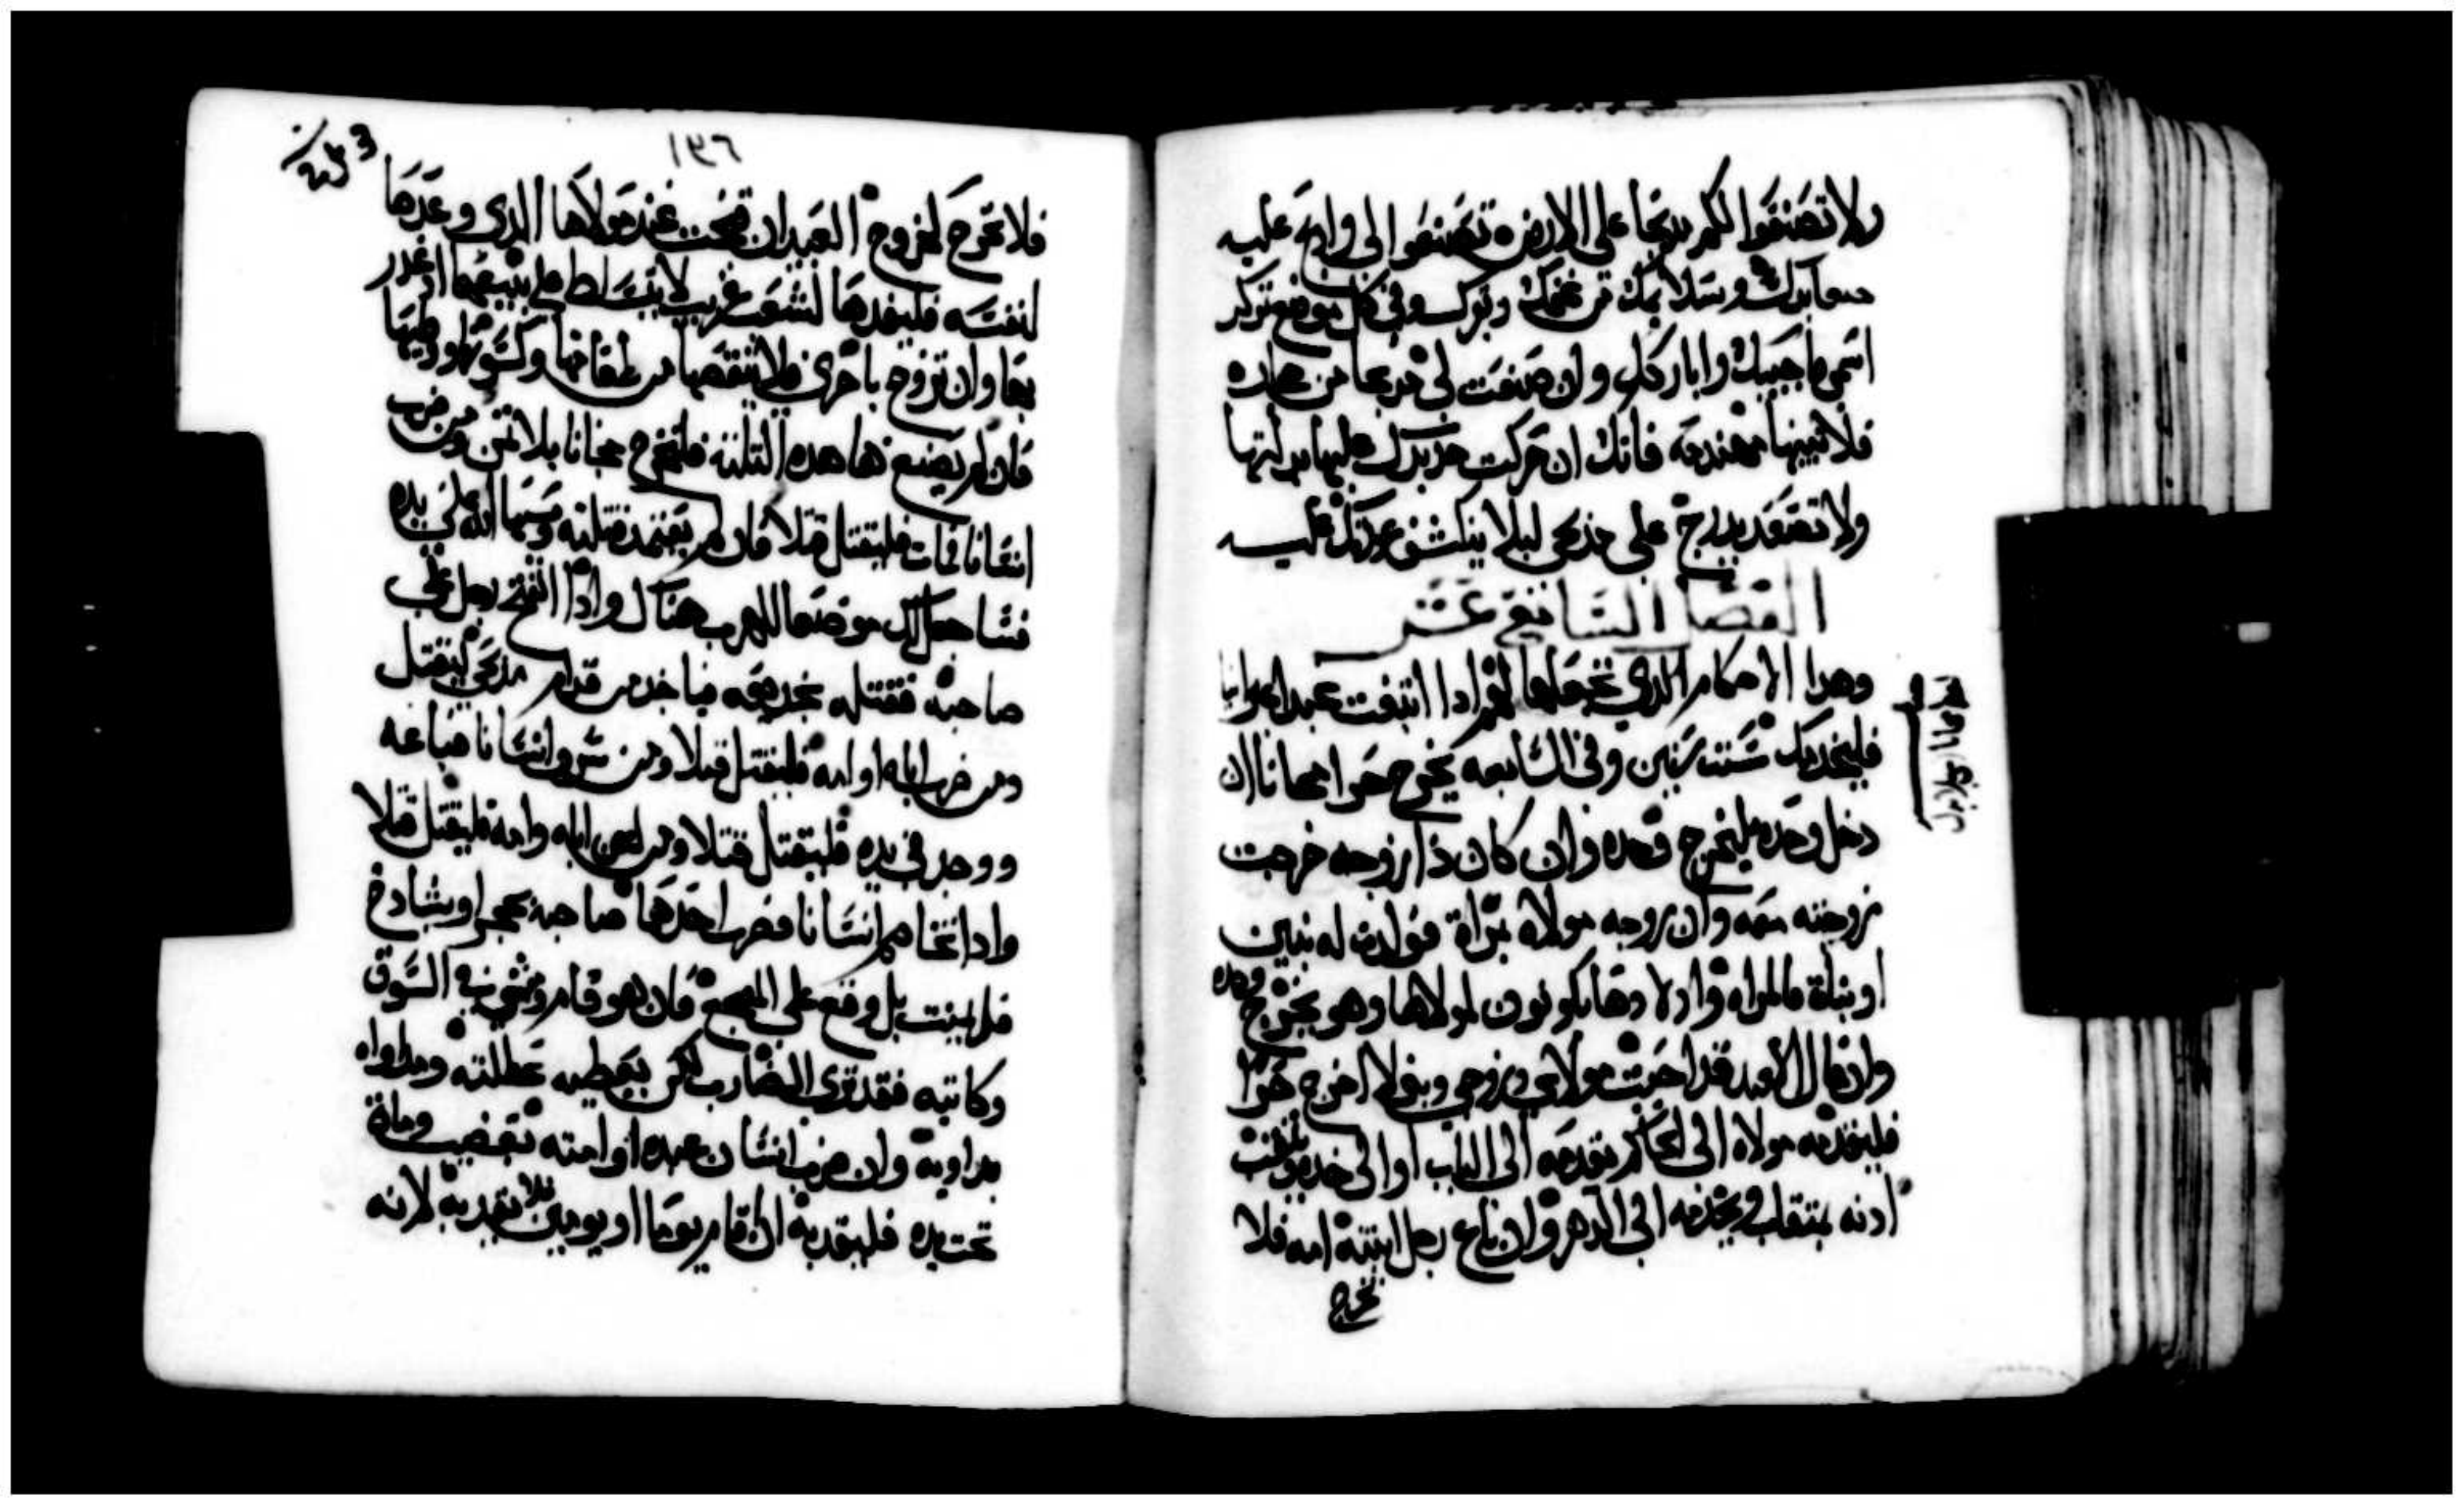 ولا تصنعوا لكم مدبحا على الارض تصنعوا لي واربح عليه
صعايدك وسلايمك من غنمك وبقرك وفي كل موضع تذكر
اسمي اجيبك واباركك وان صنعت لي مدبحا من حجاره
فلا تبينها مهندمه فانك ان حركت حديدك عليها بدلتها
ولا تصعد بدرج على مذبحي ليلا ينكشف عريتك عليه
الفصل السابع عشر
وهدا الاحكام الذي تجعلها لهم ادا ابتعت عبدا عبرانيا
فليخدمك ست سنين وفي السابعه يخرج حرا مجانا ان
دخل وحده فليخرج وحده وان كان ذا زوجه خرجت
زوجته معه وان زوجه مولاه بمراة فولدت له بنين
او بناة فالمراه واولادها يكونون لمولاها وهو يخرج وحده
وان قال العبد قد احببت مولاي وزوجي وبنو لا اخرج حرا
فليقدمه مولاه الى الحاكم يقدمه الى الباب او الى خده ويثقب
ادنه بمثقب ويخدمه الى الدهر وان باع رجل ابنته امه فلا
تخرج
١٣٦
فلا تخرج لخروج العبيد ان قبحت عند مولاها الذي وعدها
لنفسه فليفدها لشعب غريب لا يتسلط على بيعها اذ غدر
بها وان تزوج باخرى فلا ينقصها من نفقاتها وكسوتها و
فان لم يصنع بها هده الثلثة فلتخرج مجانا بلا ثمن ومن ضرب
انسانا فمات فليقتل قتلا فان لم يتعمد قتلته وسبا الله على يده
فسا جعل لك موضعا للهرب هناك واذا اتقح رجل على
صاحبه فقتله بخديعه فيا خدمن قدام مذبحي ليقتل
ومن ضرب ابيه او امه فليقتل قتلا ومن سرق انسانا فباعه
ووجد في يده فليقتل قتلا ومن لعن ابيه وامه فليقتل قتلا
وادا تخاصم انسانا فضرب احدها صاحبه بحجر او
فلم يمت بل وقع على المضجع فان هو قام ومشى في السوق
وكانيه فقد برى الضارب لكن يعطيه عطلته ومداواه
مداويه وان ضرب انسان عبده او امته بقضيب وماة
تحت يده فليقد به ان اقام يوما او يومين فلا يقد به لانه